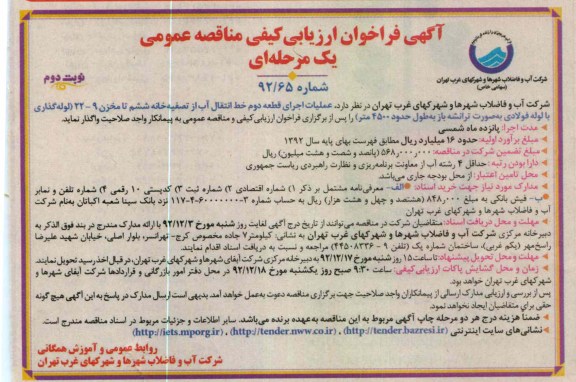 آگهی فراخوان ارزیابی کیفی مناقصه عمومی
یک مرحله‌ای
شماره ۹۲/۶۵
نوبت دوم
شرکت آب و فاضلاب شهرها و شهرکهای غرب تهران
(سهامی خاص)
شرکت آب و فاضلاب شهرها و شهرکهای غرب تهران در نظر دارد، عملیات اجرای قطعه دوم خط انتقال آب از تصفیه‌خانه ششم تا مخزن ۹ - ۲۲ (لوله‌گذاری
با لوله فولادی به‌صورت ترانشه باز به‌طول حدود ۴۵۰۰ متر) را پس از برگزاری فراخوان ارزیابی کیفی و مناقصه عمومی به پیمانکار واجد صلاحیت واگذار نماید.
مدت اجرا: پانزده ماه شمسی
مبلغ برآورد اولیه: حدود ۱۶ میلیارد ریال مطابق فهرست بهای پایه سال ۱۳۹۲
مبلغ تضمین شرکت در مناقصه: ۵۶۸,۰۰۰,۰۰۰ (پانصد و شصت و هشت میلیون) ریال
دارا بودن رتبه: حداقل ۴ رشته آب از معاونت برنامه‌ریزی و نظارت راهبردی ریاست جمهوری
محل تامین اعتبار: از محل بودجه جاری می‌باشد.
مدارک مورد نیاز جهت خرید اسناد: الف- معرفی‌نامه مشتمل بر ذکر ۱) شماره اقتصادی ۲) شماره ثبت ۳) کدپستی ۱۰ رقمی ۴) شماره تلفن و نمابر
ب- فیش بانکی به مبلغ ۸۴۸,۰۰۰ (هشتصد و چهل و هشت هزار) ریال به حساب شماره ۳-۱۱۷-۴-۶۰۰۰۰۰۰ نزد بانک سینا شعبه اکباتان به‌نام شرکت
آب و فاضلاب شهرها و شهرکهای غرب تهران
مهلت و محل دریافت اسناد: متقاضیان شرکت در مناقصه می‌توانند از تاریخ درج آگهی لغایت روز شنبه مورخ ۹۲/۱۲/۳ با ارائه مدارک مندرج در بند فوق الذکر به
دبیرخانه مرکزی شرکت آب و فاضلاب شهرها و شهرکهای غرب تهران به نشانی: کیلومتر ۷ جاده مخصوص کرج- تهرانسر، بلوار اصلی، خیابان شهید علیرضا
راسخ‌مهر (یکم غربی)، ساختمان شماره یک (تلفن ۹ - ۴۴۵۰۸۳۳۶) مراجعه و نسبت به دریافت اسناد اقدام نمایند.
مهلت و محل تحویل پیشنهادات: تا ساعت ۱۵ روز شنبه مورخ ۹۲/۱۲/۱۷ به دبیرخانه مرکزی شرکت آبفای شهرها و شهرکهای غرب تهران، در قبال اخذ رسید تحویل نمایند.
زمان و محل گشایش پاکات ارزیابی کیفی: ساعت ۹:۳۰ صبح روز یکشنبه مورخ ۹۲/۱۲/۱۸ در محل دفتر امور بازرگانی و قراردادها شرکت آبفای شهرها و
شهرکهای غرب تهران خواهد بود.
پس از بررسی و ارزیابی مدارک ارسالی از پیمانکاران واجد صلاحیت جهت برگزاری مناقصه دعوت به‌عمل خواهد آمد. بدیهی است ارسال مدارک در پاسخ به این آگهی هیچ گونه
حقی برای متقاضیان ایجاد نخواهد نمود.
ضمنا هزینه درج هر دو مرحله چاپ آگهی مربوط به این مناقصه به‌عهده برنده می‌باشد. سایر اطلاعات و جزئیات مربوط در اسناد مناقصه مندرج است.
نشانی‌های سایت اینترنتی (http://tender.bazresi.ir) ، (http://tender.nww.co.ir) ، (http://iets.mporg.ir)
روابط عمومی و آموزش همگانی
شرکت آب و فاضلاب شهرها و شهرکهای غرب تهران